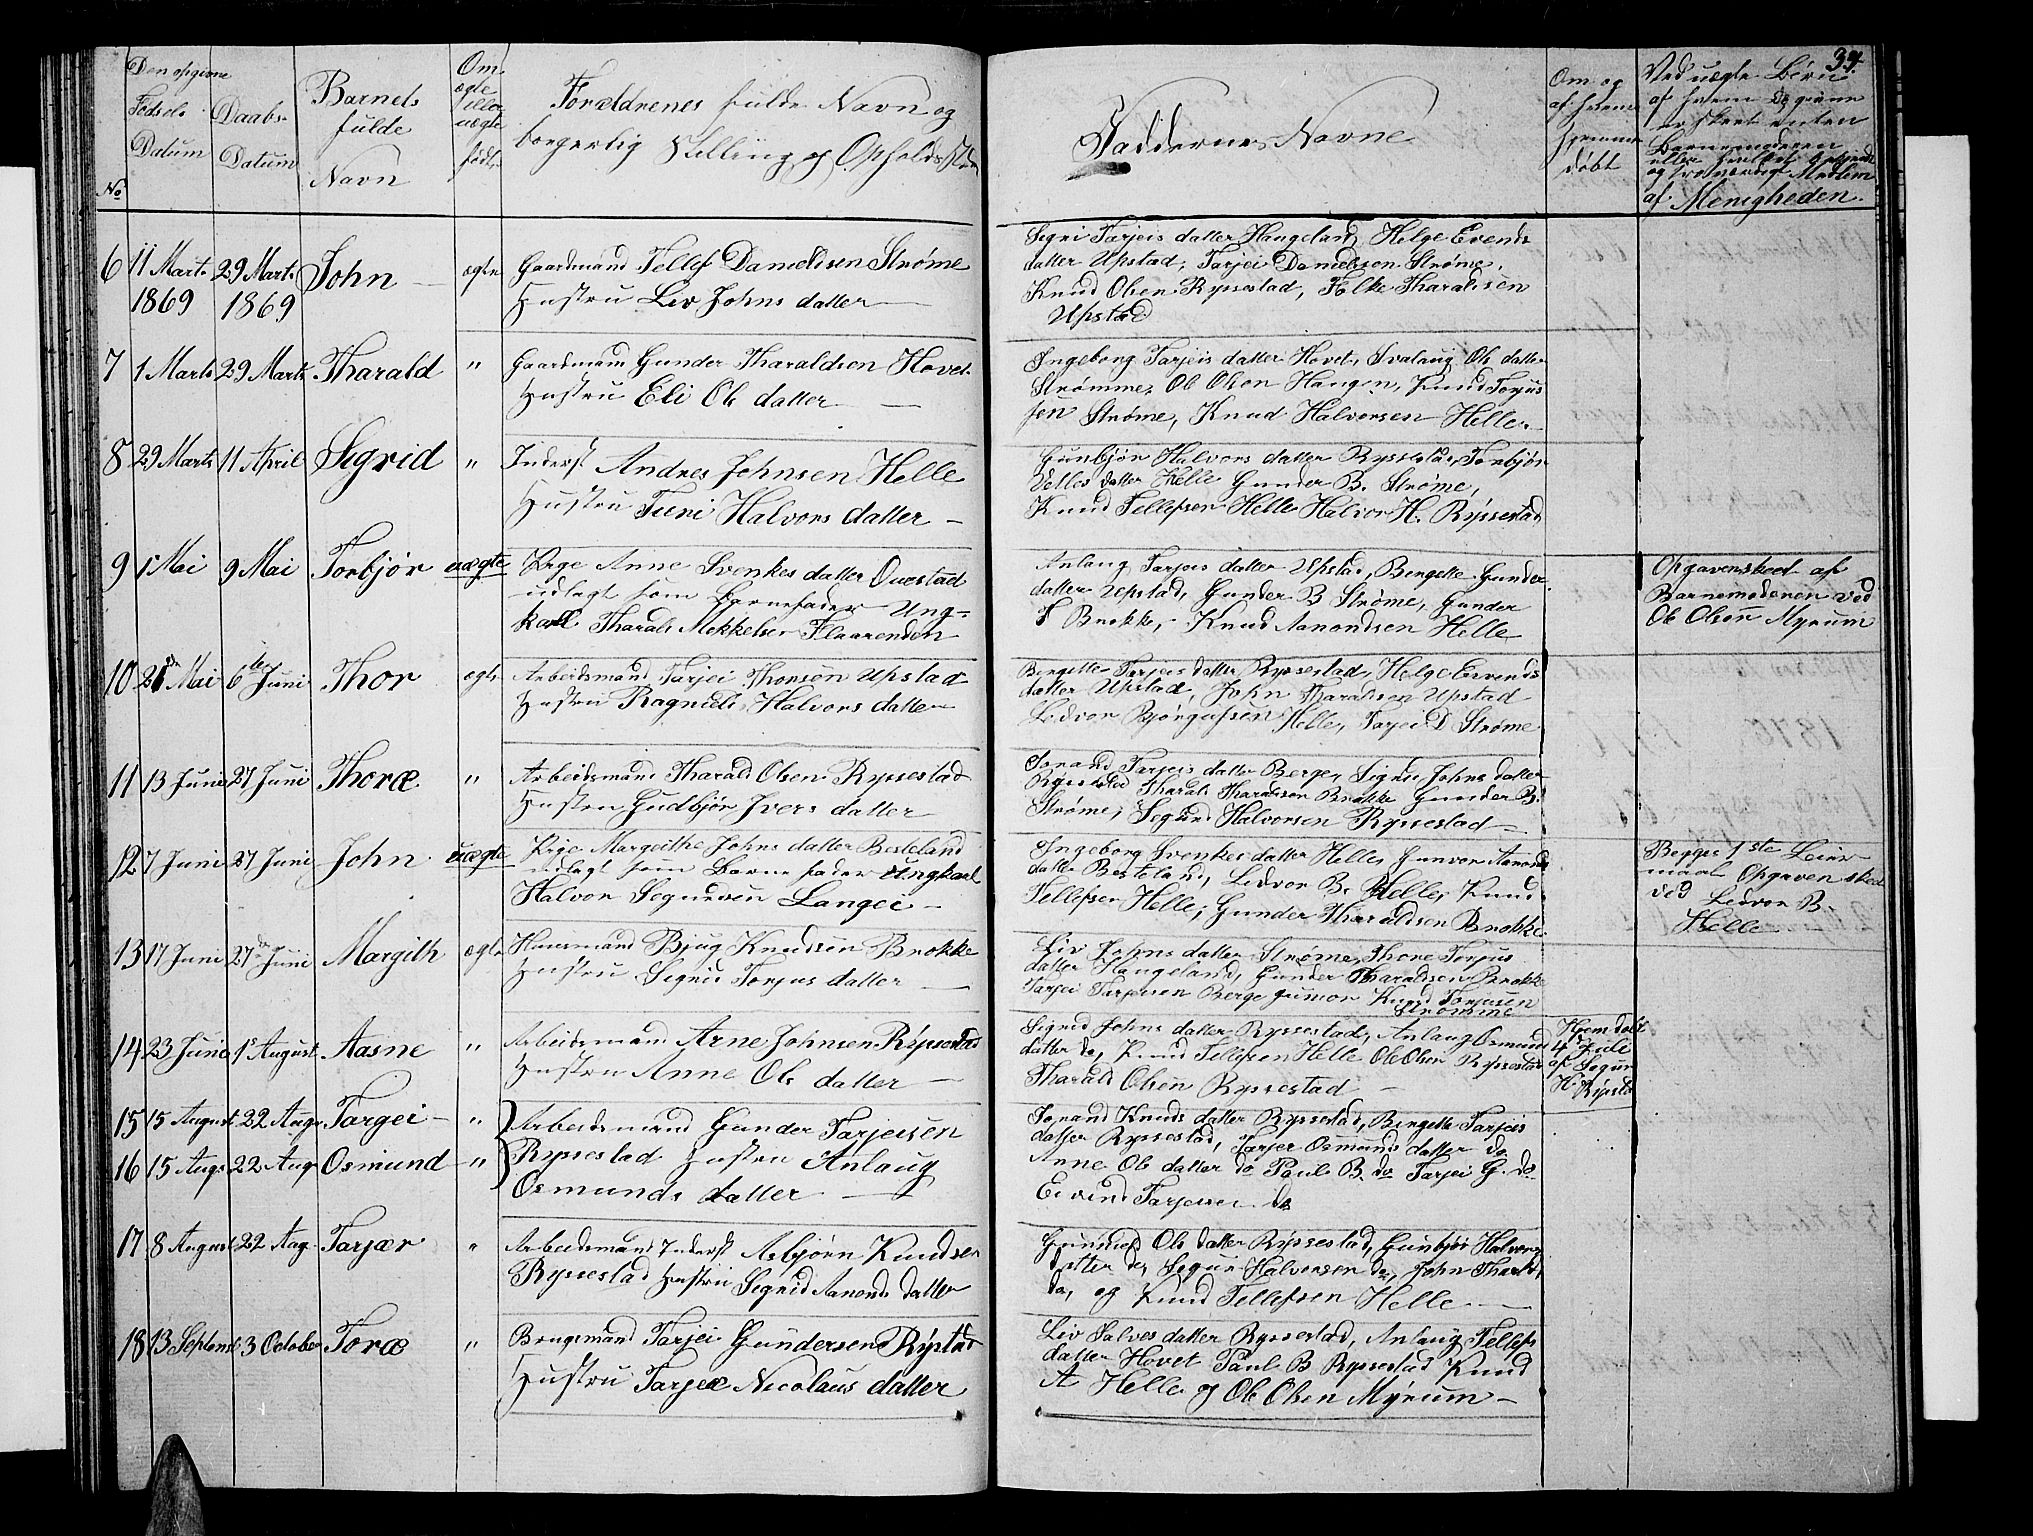 34.
Den opgivne
Fødsels
Datum
Daabs
Datum
Barnets
fulde
Navn
Om
ægte
eller
uægte
født
Forældrenes fulde Navn og
borgerlig Stilling og Opholdssted
No
Faddernes Navne
Om og
af hvem
hjemme
døbt
Ved uægte Børn
af hvem Opgivne
er skeet enten
Barnemoderen
eller hvilket
og troværdigt Medlem
af Menigheden.
6 11 Marts 29 Marts John ægte Gaardmand Tellef Danielsen Strøme
1869 1869 Hustru Liv Johns datter
Sigri Tarjeis datter Haugeland, Helge Evends
datter Upstad, Tarjei Danielsson Strøme,
Knud Olsen Ryssestad, Folke Tharaldsen
Upstad
7 1 Marts 29 Marts Tharald " Gaardmand Gunder Tharaldsen Hovet
Hustru Eli Ols datter
Ingeborg Tarjeis datter Hovet, Svalaug Ols datter
Strømme, Ole Olsen Haugen, Knud Torjus
sen Strøme, Knud Halvorsen Helle
8 29 Marts 11 April Sigrid " Inderst Andres Johnsen Helle
Hustru Tuni Halvors datter
Gunbjør Halvors datter Ryssestad, Torbjør
Vetles datter Helle Gunder B. Strøme,
Knud Tellefsen Helle Halvor H. Ryssestad
9 1 Mai 9 Mai Torbjør uægte Pige Anne Svenkes datter Questad
udlagt som Barnefader Ung=
karl Tharald Mikkelsen Flaarenden
Anlaug Tarjeis datter Upstad, Bergitte Gunder
datter Upstad, Gunder B Strøme, Gunder
T Brokke, Knud Aanondsen Helle
Opgaven skeet af
Barnemoderen ved
Ole Olsen Myrum
10 21 Mai 6te Juni Thor ægte Arbeidsmand Tarjei Thorsen Upstad
Hustru Ragnild Halvors datter
Bergitte Tarjeis datter Ryssestad, Helge Evends
datter Upstad, John Tharaldsen Upstad
Ledvor Bjørgufsen Helle, Tarjei D Strøme
11 13 Juni 27 Juni Thoræ " Arbeidsmand Tharald Olsen Ryssestad
Hustru Gudbjør Ivers datter
Jorand Tarjeis datter Berge, Signe Johns datter
Ryssestad Tharald Tharaldsen Brokke Gunder B.
Strøme, Segund Halvorsen Ryssestad
12 7 Juni 27 Juni John uægte Pige Margrithe Johns datter Besteland
udlagt som Barnefader Ungkarl
Halvor Segurdsen Langei
Ingeborg Svenkes datter Helle, Gunvor Aanonds
datter Besteland, Ledvor B. Helle, Knud
Tellefsen Helle, Gunder Tharaldsen Brokke
Begges 1ste Leier
maal Opgaven skeet
ved Ledvor B.
Helle
13 17 Juni 27de Juni Margith ægte Huusmand Bjug Knudsen Brokke
Hustru Sigrid Torjus datter
Liv Johns datter Strøme, Thone Torjus
datter Haugeland, Gunder Tharaldsen Brokke
Tarjei Tarjeisen Berge Knud Torjusen
Strømme
14 23 Juni 1s August Aasne " Arbeidsmand Arne Johnsen Ryssestad
Hustru Anne Ols datter
Sigrid Johns datter Ryssestad, Anlaug Osmund
datter do, Knud Tellefsen Helle Ole Olsen Ryssestad
Tharald Olsen Ryssestad
Hjemdøbt
4de Juli
af Segur
H. Rysstad
15 15 August 22 Augu Targei " Arbeidsmand Gunder Tarjeisen
16 15 Augs 22 Aug Osmund " Ryssestad Hustru Anlaug
Osmunds datter
Jorand Knuds datter Ryssestad, Bergitte Tarjeis
datter Ryssestad, Tarjer Osmunds datter do
Anne Ols datter do Paul B. do Tarjei G. do
Eivind Tarjeisen do
17 8 August 22 Aug Tarjær " Arbeidsmand Inderst Asbjørn Knudsen
Ryssestad Hustru Segrid Aanonds datter
Gunnild Ols datter Ryssestad, Gunbjør Halvors
datter do, Segur Halvorsen do, John Tharalds
do, og Knud Tellefsen Helle
18 13 Septemb 3 October Toræ " Brugsmand Tarjei Gundersen Rystad
Hustru Tarjer Nicolaus datter
Liv Salves datter Ryssestad, Anlaug Tellefs
datter Hovet Paul B Ryssestad Knud
A Helle og Ole Olsen Myrum